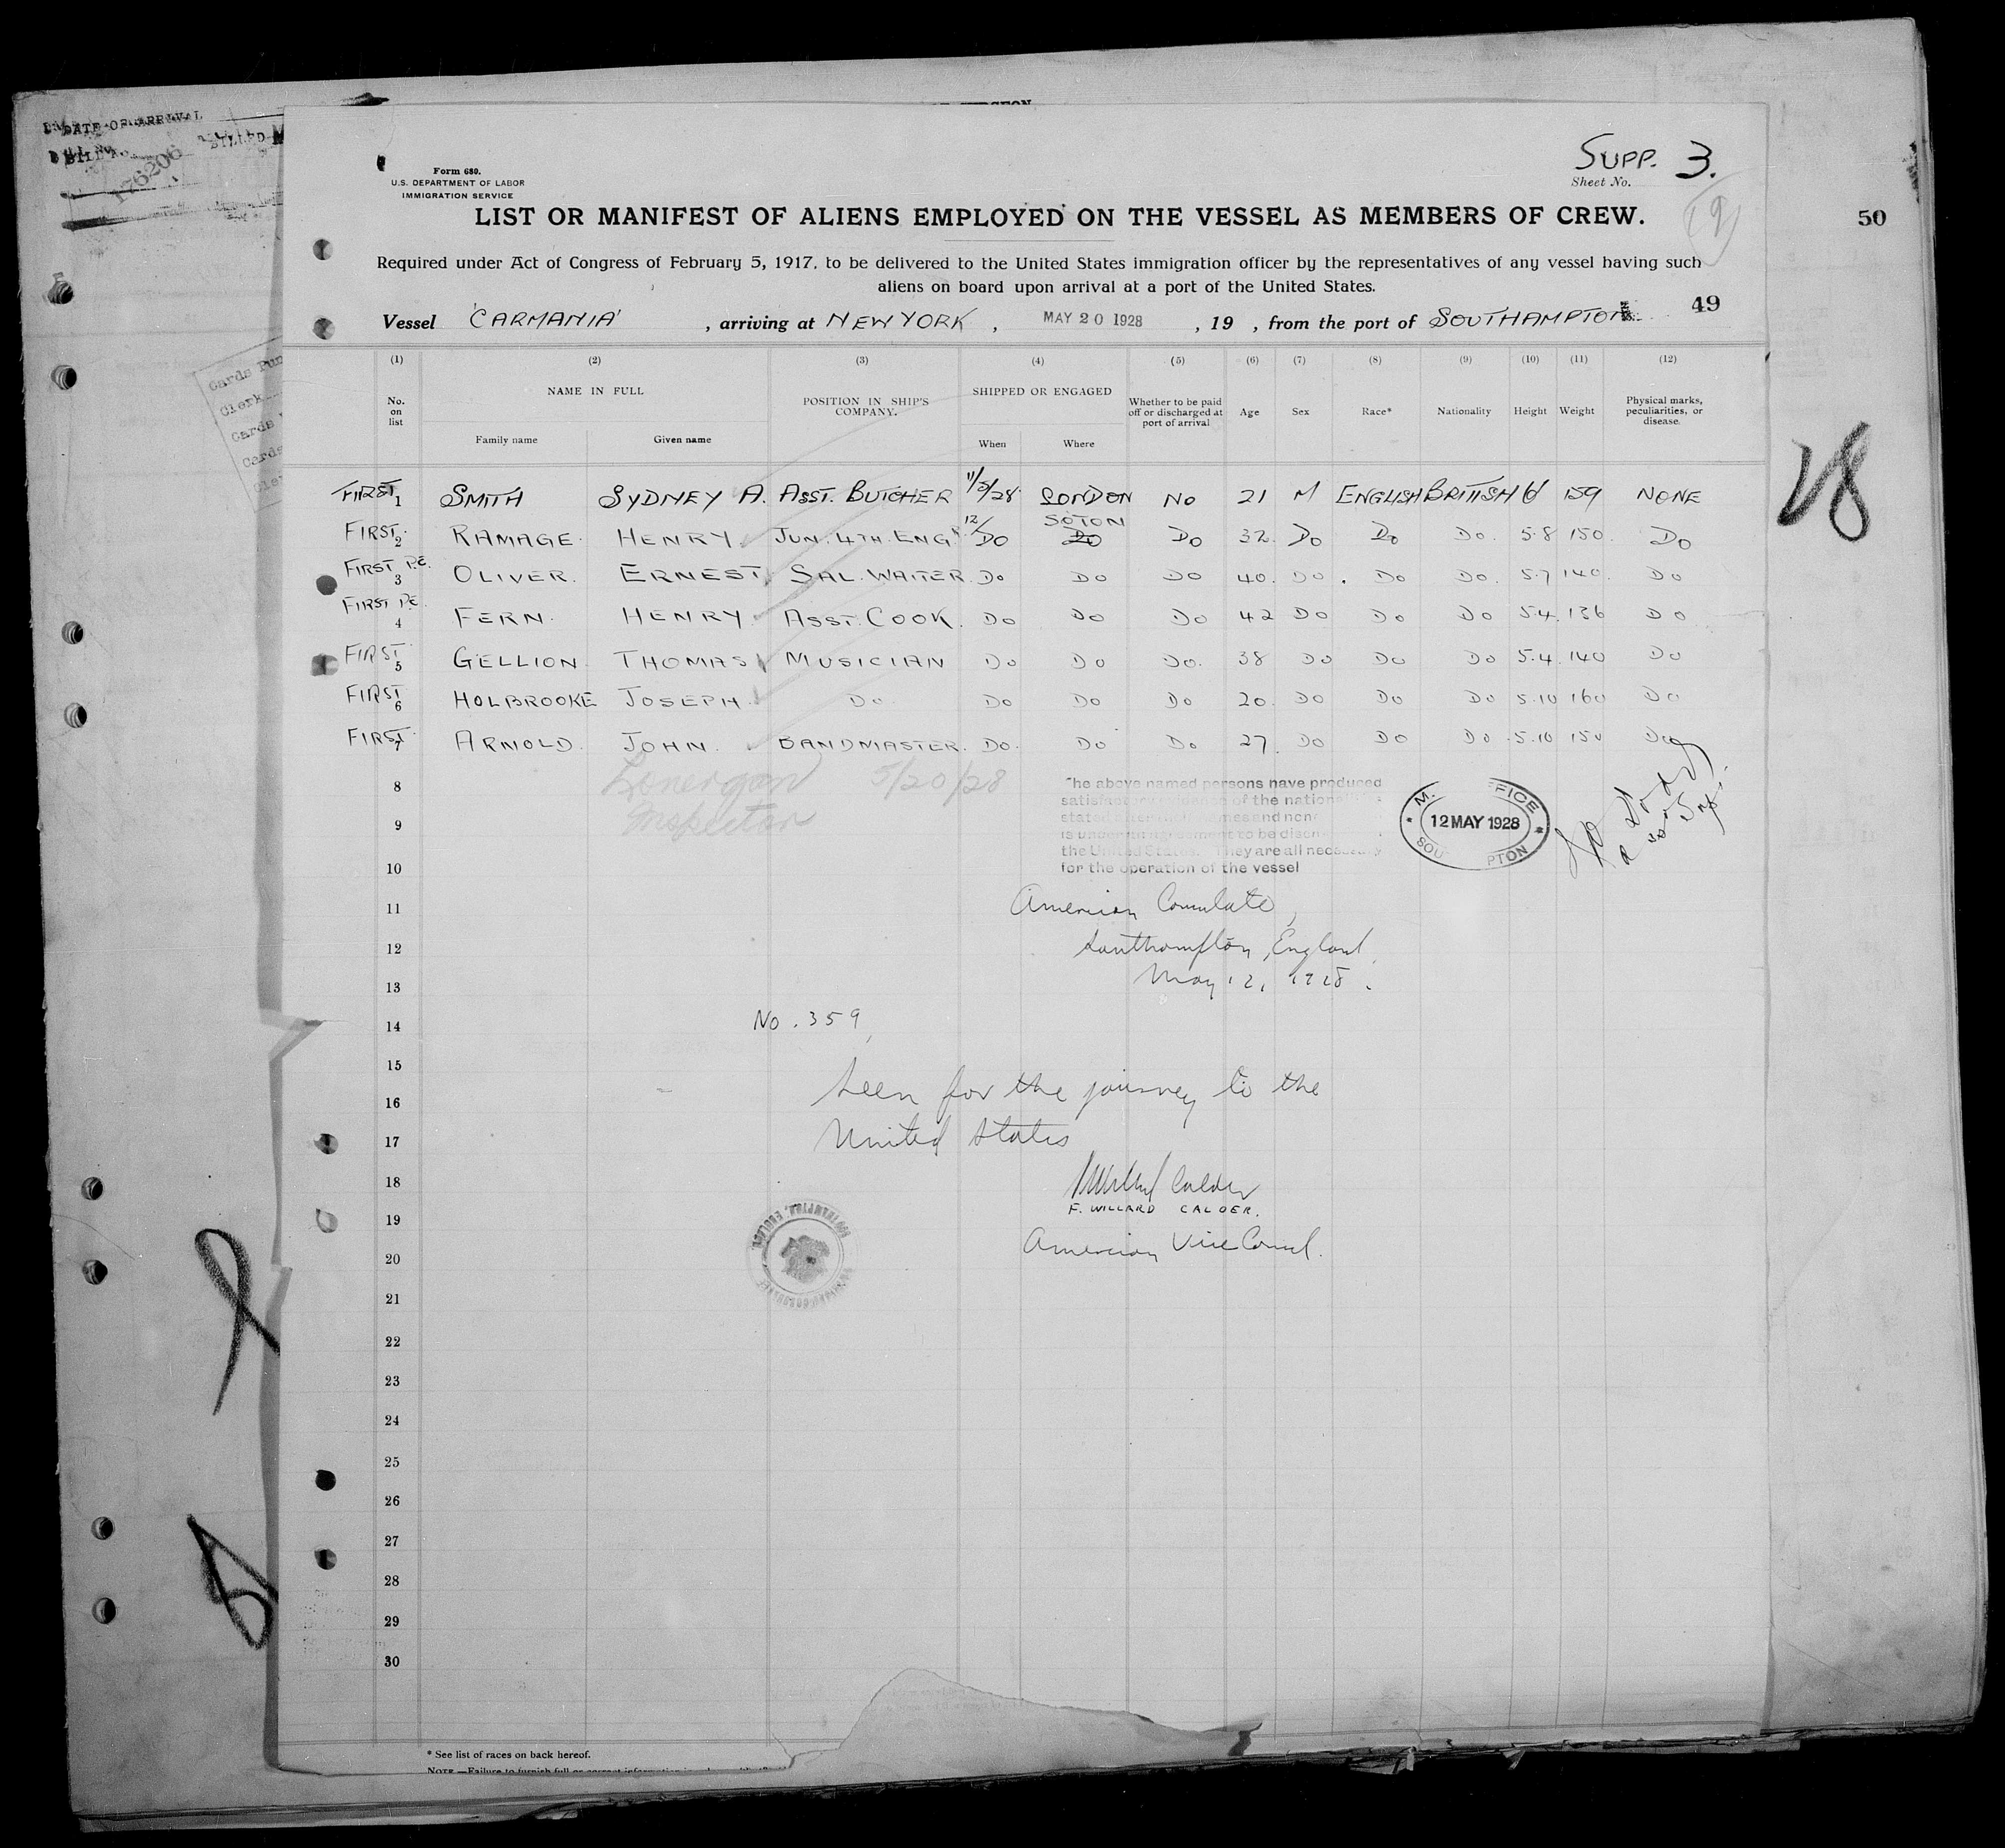 DATE OF ARRIVAL
176206
Cards
Clerk
Cards
Cards
50
28
SUPP. 3.
Sheet No.
Form 680.
U.S. DEPARTMENT OF LABOR
IMMIGRATION SERVICE
LIST OR MANIFEST OF ALIENS EMPLOYED ON THE VESSEL AS MEMBERS OF CREW.
Required under Act of Congress of February 5, 1917, to be delivered to the United States immigration officer by the representatives of any vessel having such
aliens on board upon arrival at a port of the United States.
49
Vessel 'CARMANIA' , arriving at NEW YORK , MAY 20 1928 , 19 , from the port of SOUTHAMPTON
(1) (2) (3) (4) (5) (6) (7) (8) (9) (10) (11) (12)
No. on list NAME IN FULL Family name Given name POSITION IN SHIP'S COMPANY. SHIPPED OR ENGAGED When Where Whether to be paid off or discharged at port of arrival Age Sex Race* Nationality Height Weight Physical marks, peculiarities, or disease.
FIRST 1 SMITH SYDNEY A. ASST. BUTCHER 11/5/28 LONDON NO 21 M ENGLISH BRITISH 159 NONE
FIRST 2 RAMAGE HENRY JUN. 4TH. ENGR 12/ DO SOTON DO DO 32 DO DO DO. 5.8 150 DO
FIRST P.E. 3 OLIVER. ERNEST SAL. WAITER DO DO DO 40. DO DO DO. 5.7 140. DO
FIRST P.E. 4 FERN. HENRY ASST. COOK. DO DO DO 42 DO DO DO 5.4. 136 DO
FIRST 5 GELLION THOMAS MUSICIAN DO DO DO. 38 DO DO DO 5.4. 140 DO
FIRST 6 HOLBROOKE JOSEPH DO DO DO DO 20. DO DO DO 5.10 160 DO
FIRST 7 ARNOLD JOHN. BANDMASTER. DO. DO DO 27. DO DO DO 5.10 150 DO
8
Lonergan 5/20/28
Inspector
The above named persons have produced
satisfactory evidence of the nationalities
stated after their names and none
is under agreement to be discharged in
the United States. They are all necessary
for the operation of the vessel
12 MAY 1928
9
10
11 American Consulate,
12 Southampton, England.
13 May 12, 1928.
14 No. 359,
15
16 Seen for the journey to the
17 United States
18 F Willard Calder
19 F. WILLARD CALDER.
20 American Vice Consul.
21
22
23
24
25
26
27
28
29
30
* See list of races on back hereof.
NOTE.—Failure to furnish full or correct information